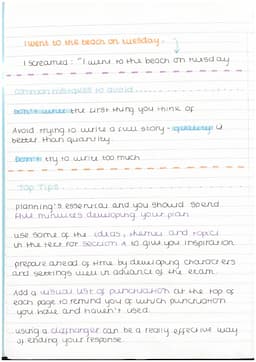 I went to the beach on tuesday.
I screamed: "I went to the beach on tuesday
Common mistakes to avoid.....
Don't write the first thing you think of
Avoid trying to write a full story - quality is
better than quantity.
Don't try to write too much
Top Tips
planning's essential and you should spend
five minutes developing your plan
use some of the ideas, themes and topics
in the text for section A to give you inspiration.
prepare ahead of time by developing characters
and settings well in advance of the exam.
Add a visual list of punctuation at the top of
each page to remind you of which punctuation
you have and haven't used.
using a cliffhanger can be a really effective way
of ending your response.